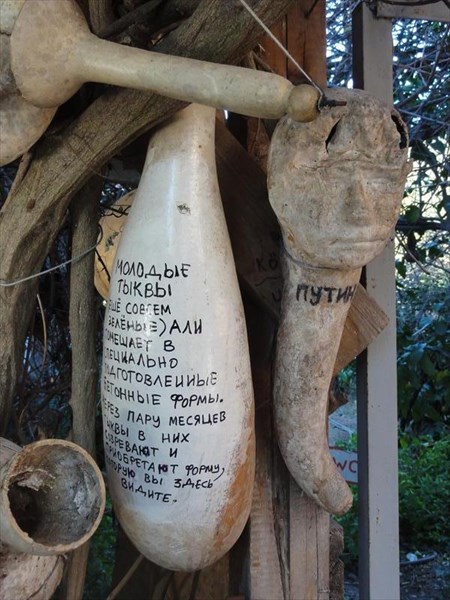 МОЛОДЫЕ
ТЫКВЫ
СОВСЕМ
ЗЕЛЁНЫЕ) АЛИ
ПОМЕЩАЕТ В
СПЕЦИАЛЬНО
ПОДГОТОВЛЕННЫЕ
БЕТОННЫЕ ФОРМЫ.
ЧЕРЕЗ ПАРУ МЕСЯЦЕВ
ТЫКВЫ В НИХ
СОЗРЕВАЮТ И
ПРИОБРЕТАЮТ ФОРМУ,
КОТОРУЮ ВЫ ЗДЕСЬ
ВИДИТЕ.
ПУТИН